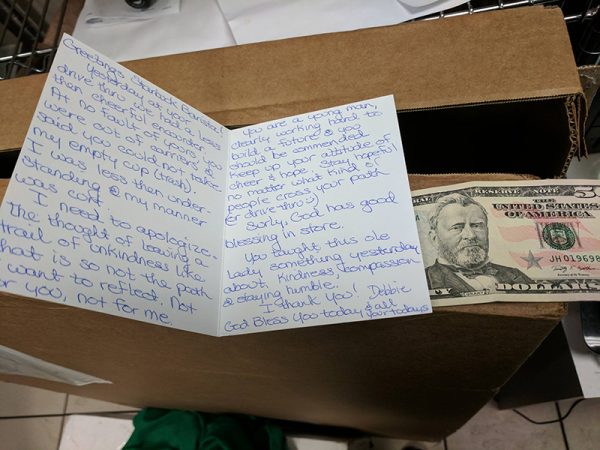 Greetings Starbuck Barista!
Yesterday at your
drive thru we had a less
than cheerful encounter
At no fault of yours you
were out of carriers &
said you could not take
my empty cup (trash).
I was less then under-
standing & my manner
was curt
I need to apologize-
The thought of leaving a
trail of unkindness like
that is so not the path
I want to reflect. Not
for you, not for me.
You are a young man,
clearly working hard to
build a future & you
should be commended.
Keep up your attitude of
cheer & hope. Stay hopeful
no matter what kind of
people cross your path
(or drive thru :)
Surly, God has good
blessing in store.
You taught this ole
Lady something yesterday
about, kindness, compassion
& staying humble.
I thank You! Debbie
God Bless You today & all
your todays
RESERVE NOTE
UNITED STATES
OF AMERICA
JH 019698
DOLLARS